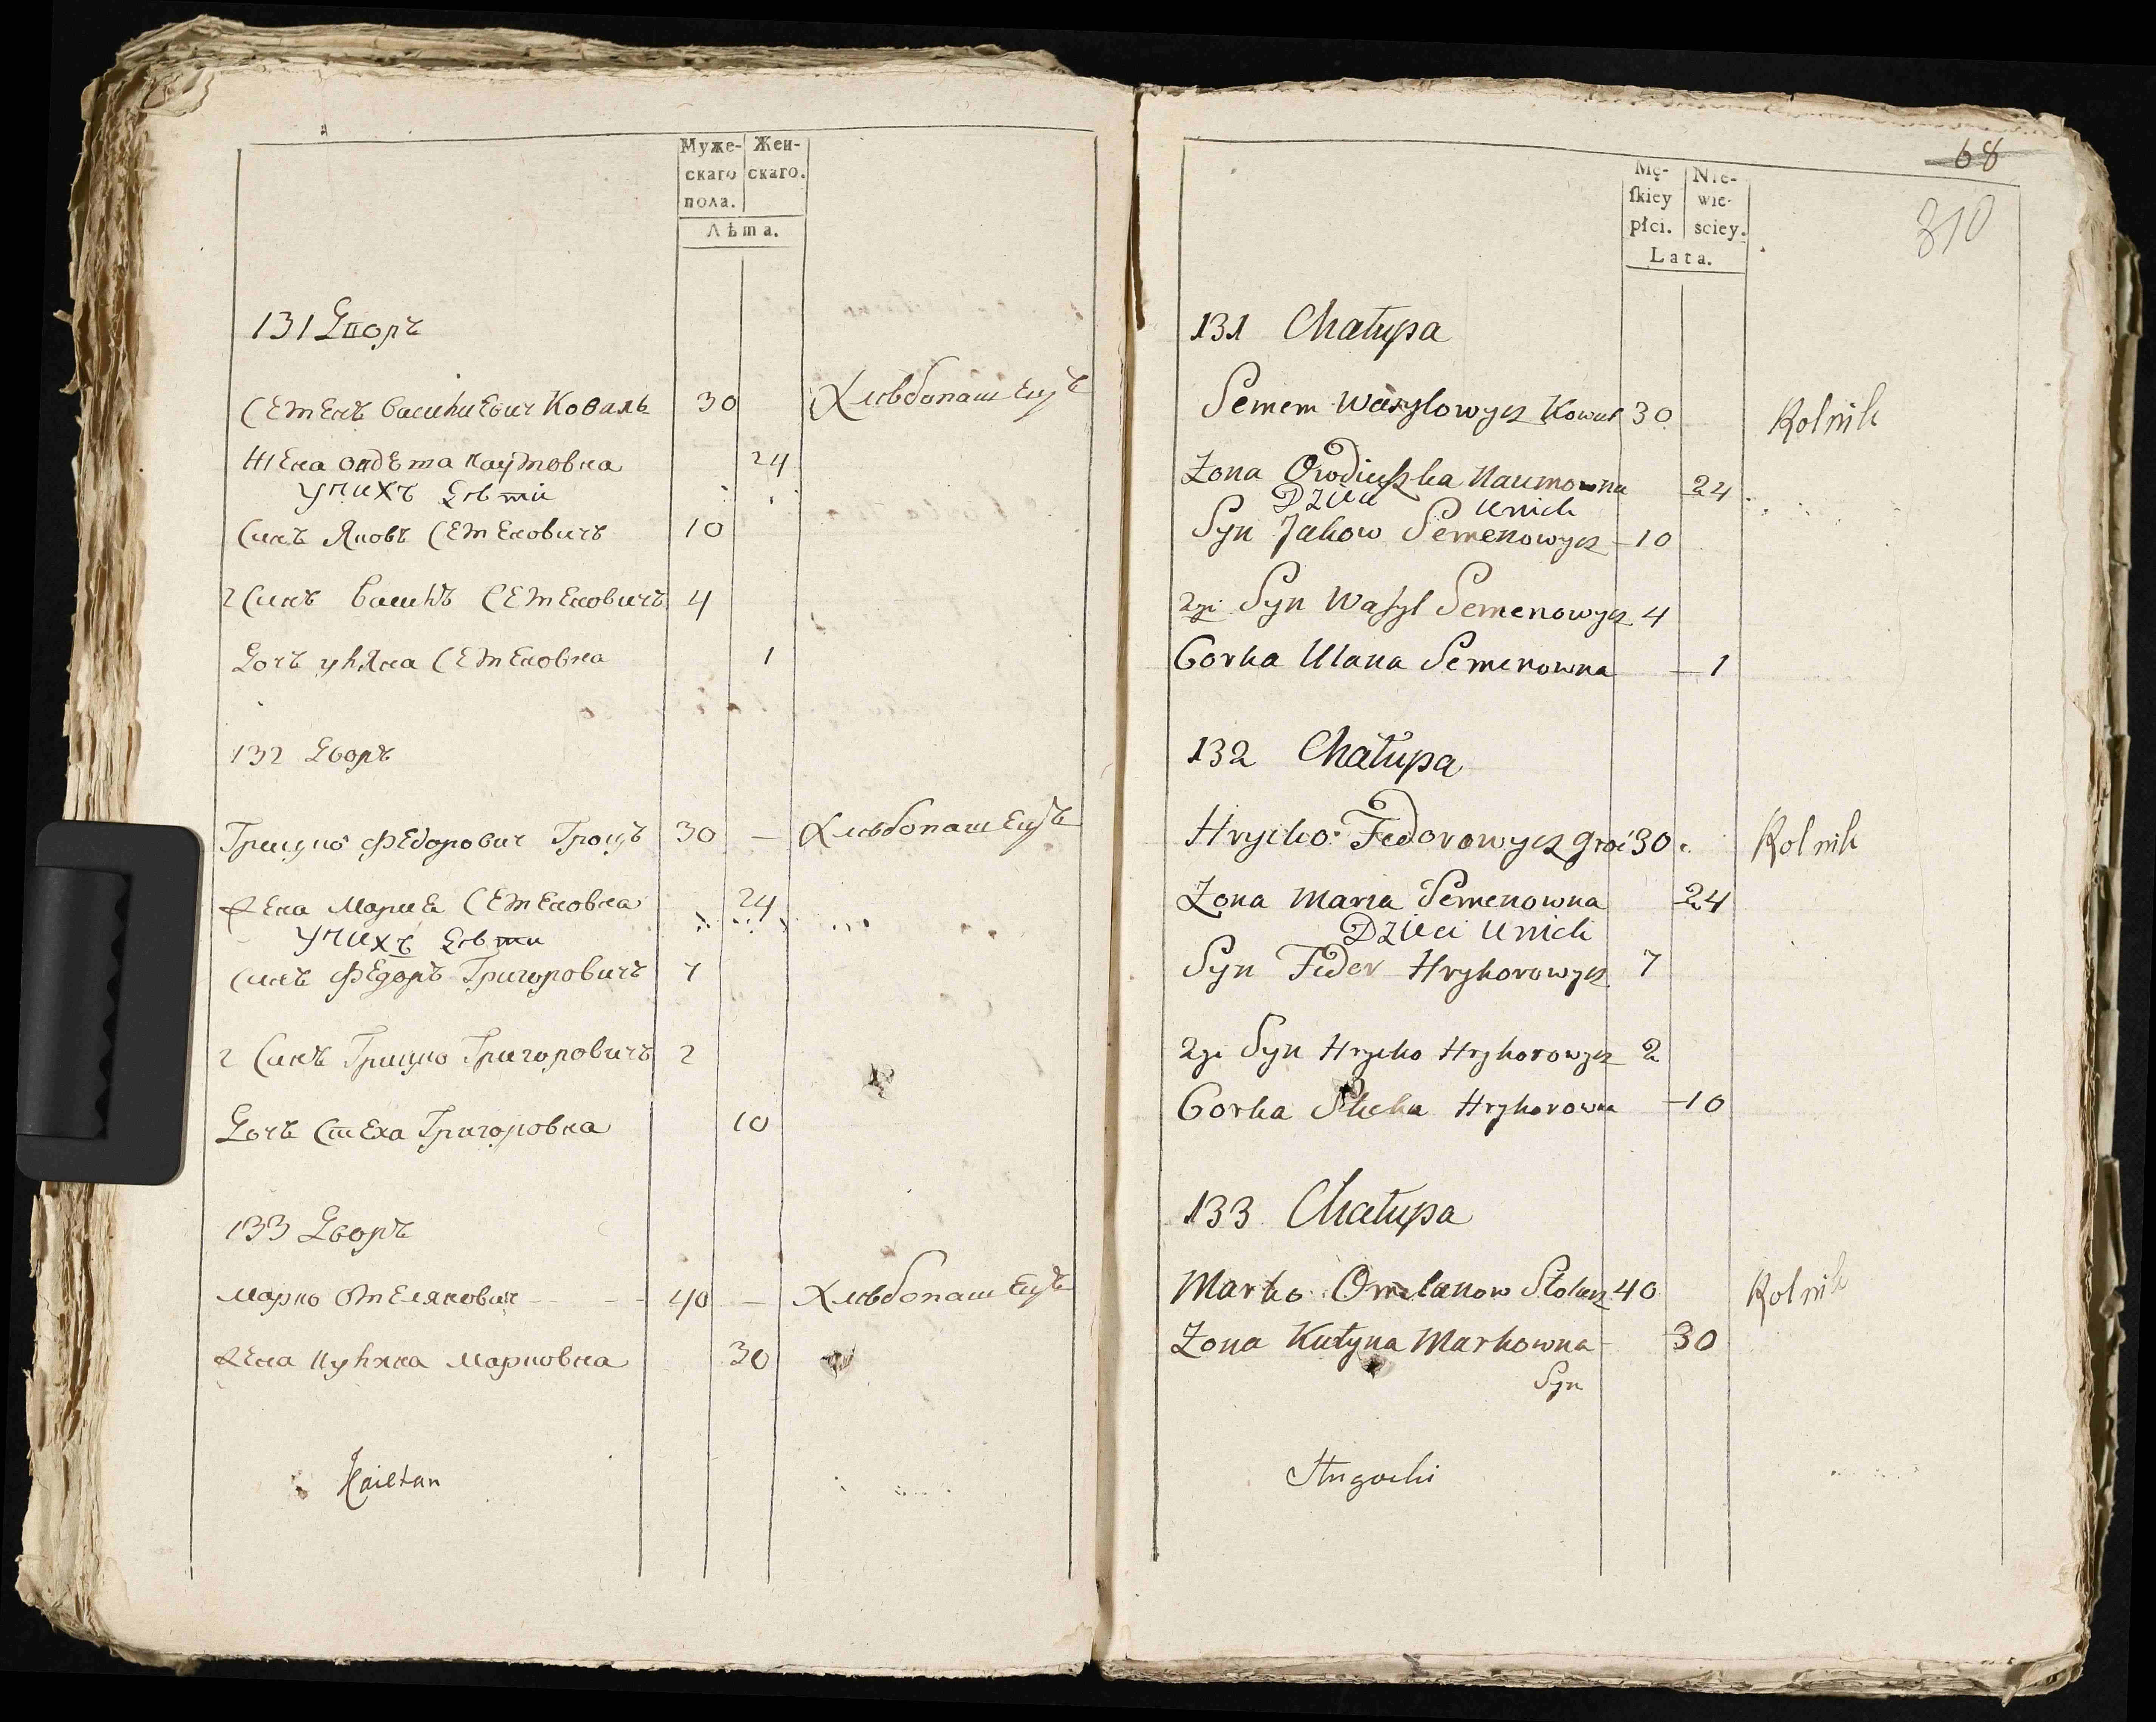 Муже-
скаго
пола.
Жен-
скаго.
Лѣта.
131 Дворъ
Семенъ Василиевич Коваль 30 Хлѣбопашецъ
Жена Наумовна 24
У них Дѣти
Синъ Яковъ Семеновичъ 10
2 Синъ Василъ Семеновичъ 4
Дочъ Уляна Семеновна 1
132 Дворъ
Грицко Федорович Гроцъ 30 — Хлѣбопашецъ
Жена Мария Семеновна 24
У нихъ Дѣти
Синъ Федоръ Григоровичъ 7
2 Синъ Грицко Григоровичъ 2
Дочъ Стеха Григоровна 10
133 Дворъ
Марко Омелянович 40 — Хлѣбопашецъ
Жена Марковна 30
Kaietan
68
310
Mę-
ſkiey
płci.
Nie-
wie-
sciey.
Lata.
131 Chałupa
Semem Wasylowycz Kowal 30 Rolnik
Zona Naumowna 24
Dzieci Unich
Syn Jakow Semenowycz 10
2gi Syn Waſyl Semenowycz 4
Corka Ulana Semenowna 1
132 Chałupa
Hrycko Fedorowycz 30 Rolnik
Zona Maria Semenowna 24
Dzieci Unich
Syn Feder Hryhorowycz 7
2gi Syn Hrycko Hryhorowycz 2
Corka Steha Hryhorowna 10
133 Chałupa
Marko Omelanow 40 Rolnik
Zona Markowna 30
Syn